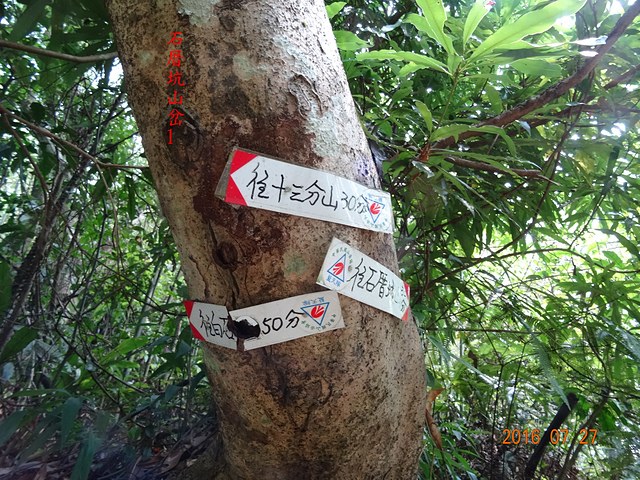 石厝坑山岔1
往十三分山30分
往石厝坑
往白石 50分
2016 07 27